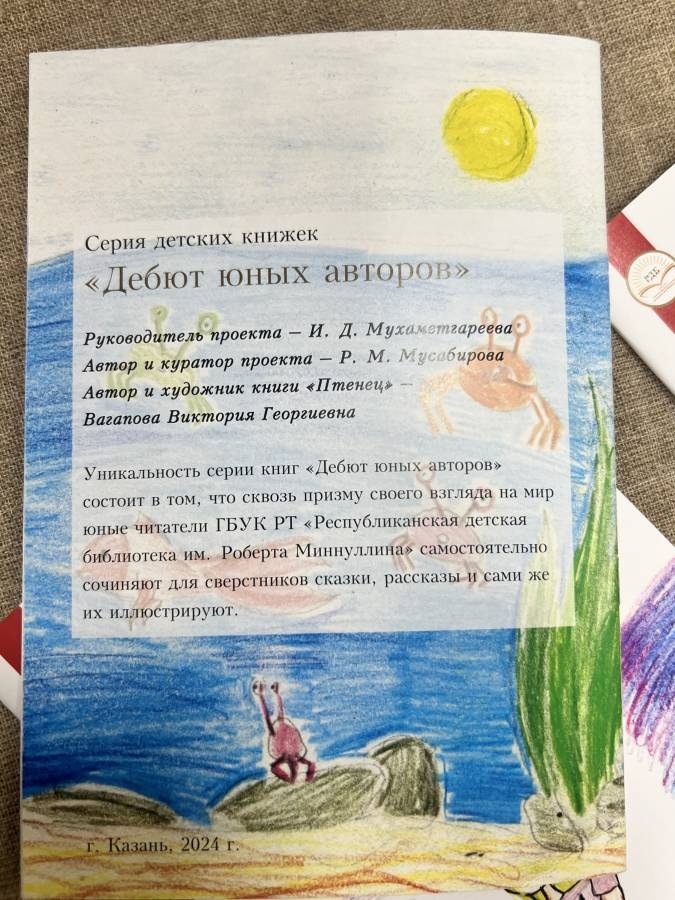 Серия детских книжек
«Дебют юных авторов»
Руководитель проекта – И. Д. Мухаметгареева
Автор и куратор проекта – Р. М. Мусабирова
Автор и художник книги «Птенец» –
Вагапова Виктория Георгиевна
Уникальность серии книг «Дебют юных авторов»
состоит в том, что сквозь призму своего взгляда на мир
юные читатели ГБУК РТ «Республиканская детская
библиотека им. Роберта Миннуллина» самостоятельно
сочиняют для сверстников сказки, рассказы и сами же
их иллюстрируют.
г. Казань, 2024 г.
РДБ